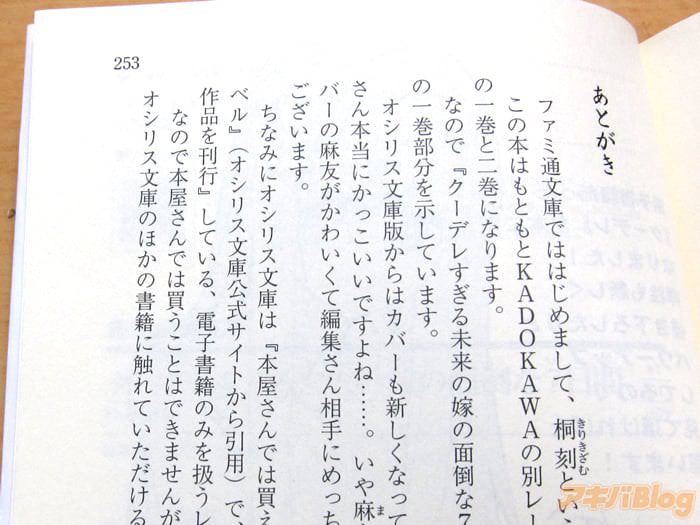 253
あとがき
ファミ通文庫でははじめまして、桐刻とい
きりきざむ
この本はもともとKADOKAWAの別レー
の一巻と二巻になります。
なので『クーデレすぎる未来の嫁の面倒な7
の一巻部分を示しています。
オシリス文庫版からはカバーも新しくなって
さん本当にかっこいいですよね……。いや麻
ま
バーの麻友がかわいくて編集さん相手にめっち
ございます。
ちなみにオシリス文庫は『本屋さんでは買え
ベル』（オシリス文庫公式サイトから引用）で、
作品を刊行』している、電子書籍のみを扱うレ
なので本屋さんでは買うことはできませんが
オシリス文庫のほかの書籍に触れていただける
アキバBlog